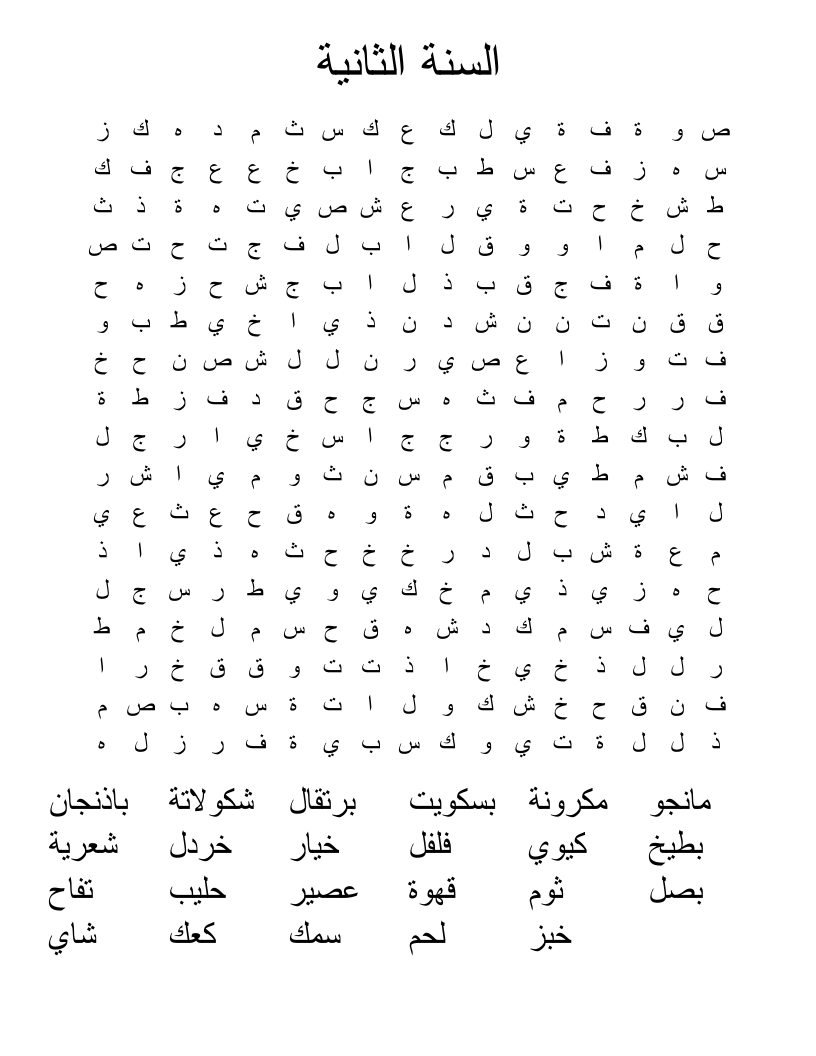 السنة الثانية
ص و ة ف ة ي ل ك ع ك س ث م د ه ك ز
س ه ز ف ع س ط ب ج ا ب خ ع ع ج ف ك
ط ش خ ح ت ة ي ر ع ش ص ي ت ه ة ذ ث
ح ل م ا و و ق ل ا ب ل ف ج ت ح ت ص
و ا ة ف ج ق ب ذ ل ا ب ج ش ح ز ه ح
ق ق ن ت ن ن ش د ن ذ ي ا خ ي ط ب و
ف ت و ز ا ع ص ي ر ن ل ل ش ص ن ح خ
ف ر ر ح م ف ث ه س ج ح ق د ف ز ط ة
ل ب ك ط ة و ر ج ج ا س خ ي ا ر ج ل
ف ش م ط ي ب ق م س ن ث و م ي ا ش ر
ل ا ي د ح ث ل ه ة و ه ق ح ع ث ع ي
م ع ة ش ب ل د ر خ خ ح ث ه ذ ي ا ذ
ح ه ز ي ذ ي م خ ك ي و ي ط ر س ج ل
ل ي ف س م ك د ش ه ق ح س م ل خ م ط
ر ل ل ذ خ ي خ ا ذ ت ت و ق ق خ ر ا
ف ن ق ح خ ش ك و ل ا ت ة س ه ب ص م
ذ ل ل ة ت ي و ك س ب ي ة ف ر ز ل ه
مانجو مكرونة بسكويت برتقال شكولاتة باذنجان
بطيخ كيوي فلفل خيار خردل شعرية
بصل ثوم قهوة عصير حليب تفاح
خبز لحم سمك كعك شاي